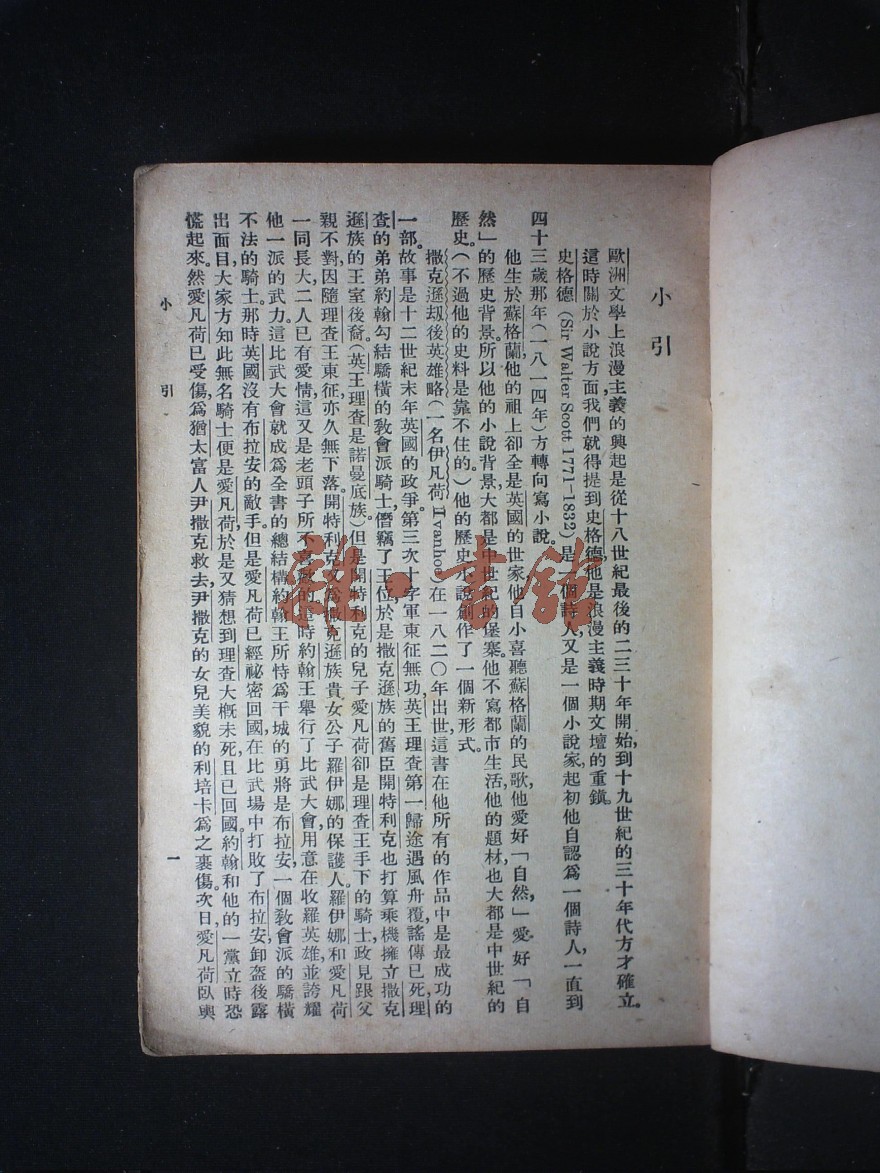 小引
歐洲文學上浪漫主義的興起是從十八世紀最後的二三十年開始，到十九世紀的三十年代方才確立。
這時關於小說方面，我們就得提到史格德，他是浪漫主義時期文壇的重鎮。
史格德（Sir Walter Scott 1771-1832）是一個詩人，又是一個小說家，起初他自認爲一個詩人，一直到
四十三歲那年（一八一四年）方轉向寫小說。
他生於蘇格蘭，他的祖上卻全是英國的世家，他自小喜聽蘇格蘭的民歌，他愛好「自然，」愛好「自
然」的歷史背景。所以他的小說背景，大都是中世紀的堡寨。他不寫都市生活，他的題材也大都是中世紀的
歷史。（不過他的史料是靠不住的。）他的歷史小說創作了一個新形式。
撒克遜刼後英雄略（一名伊凡荷 Ivanhoe）在一八二〇年出世，這書在他所有的作品中是最成功的
一部。故事是十二世紀末年英國的政爭。第三次十字軍東征無功，英王理查第一歸途遇風舟覆，謠傳已死，理
查的弟弟約翰勾結驕橫的教會派騎士，僭竊了王位，於是撒克遜族的舊臣開特利克也打算乘機擁立撒克
遜族的王室後裔（英王理查是諾曼底族）但是開特利克的兒子愛凡荷卻是理查王手下的騎士，政見跟父
親不對，因隨理查王東征，亦久無下落。開特利克又爲撒克遜族貴女公子羅伊娜的保護人。羅伊娜和愛凡荷
一同長大，二人已有愛情，這又是老頭子所不喜歡的。這時約翰王舉行了比武大會，用意在收羅英雄並誇耀
他一派的武力。這比武大會就成爲全書的總結構。約翰王所恃爲干城的勇將是布拉安，一個教會派的驕橫
不法的騎士。那時英國沒有布拉安的敵手。但是愛凡荷已經祕密回國，在比武場中打敗了布拉安，卸盔後露
出面目，大家方知此無名騎士便是愛凡荷，於是又猜想到理查大槪未死，且已回國。約翰和他的一黨立時恐
慌起來。然愛凡荷已受傷，爲猶太富人尹撒克救去，尹撒克的女兒美貌的利培卡爲之裹傷。次日，愛凡荷臥輿
小引
一
雜·書館